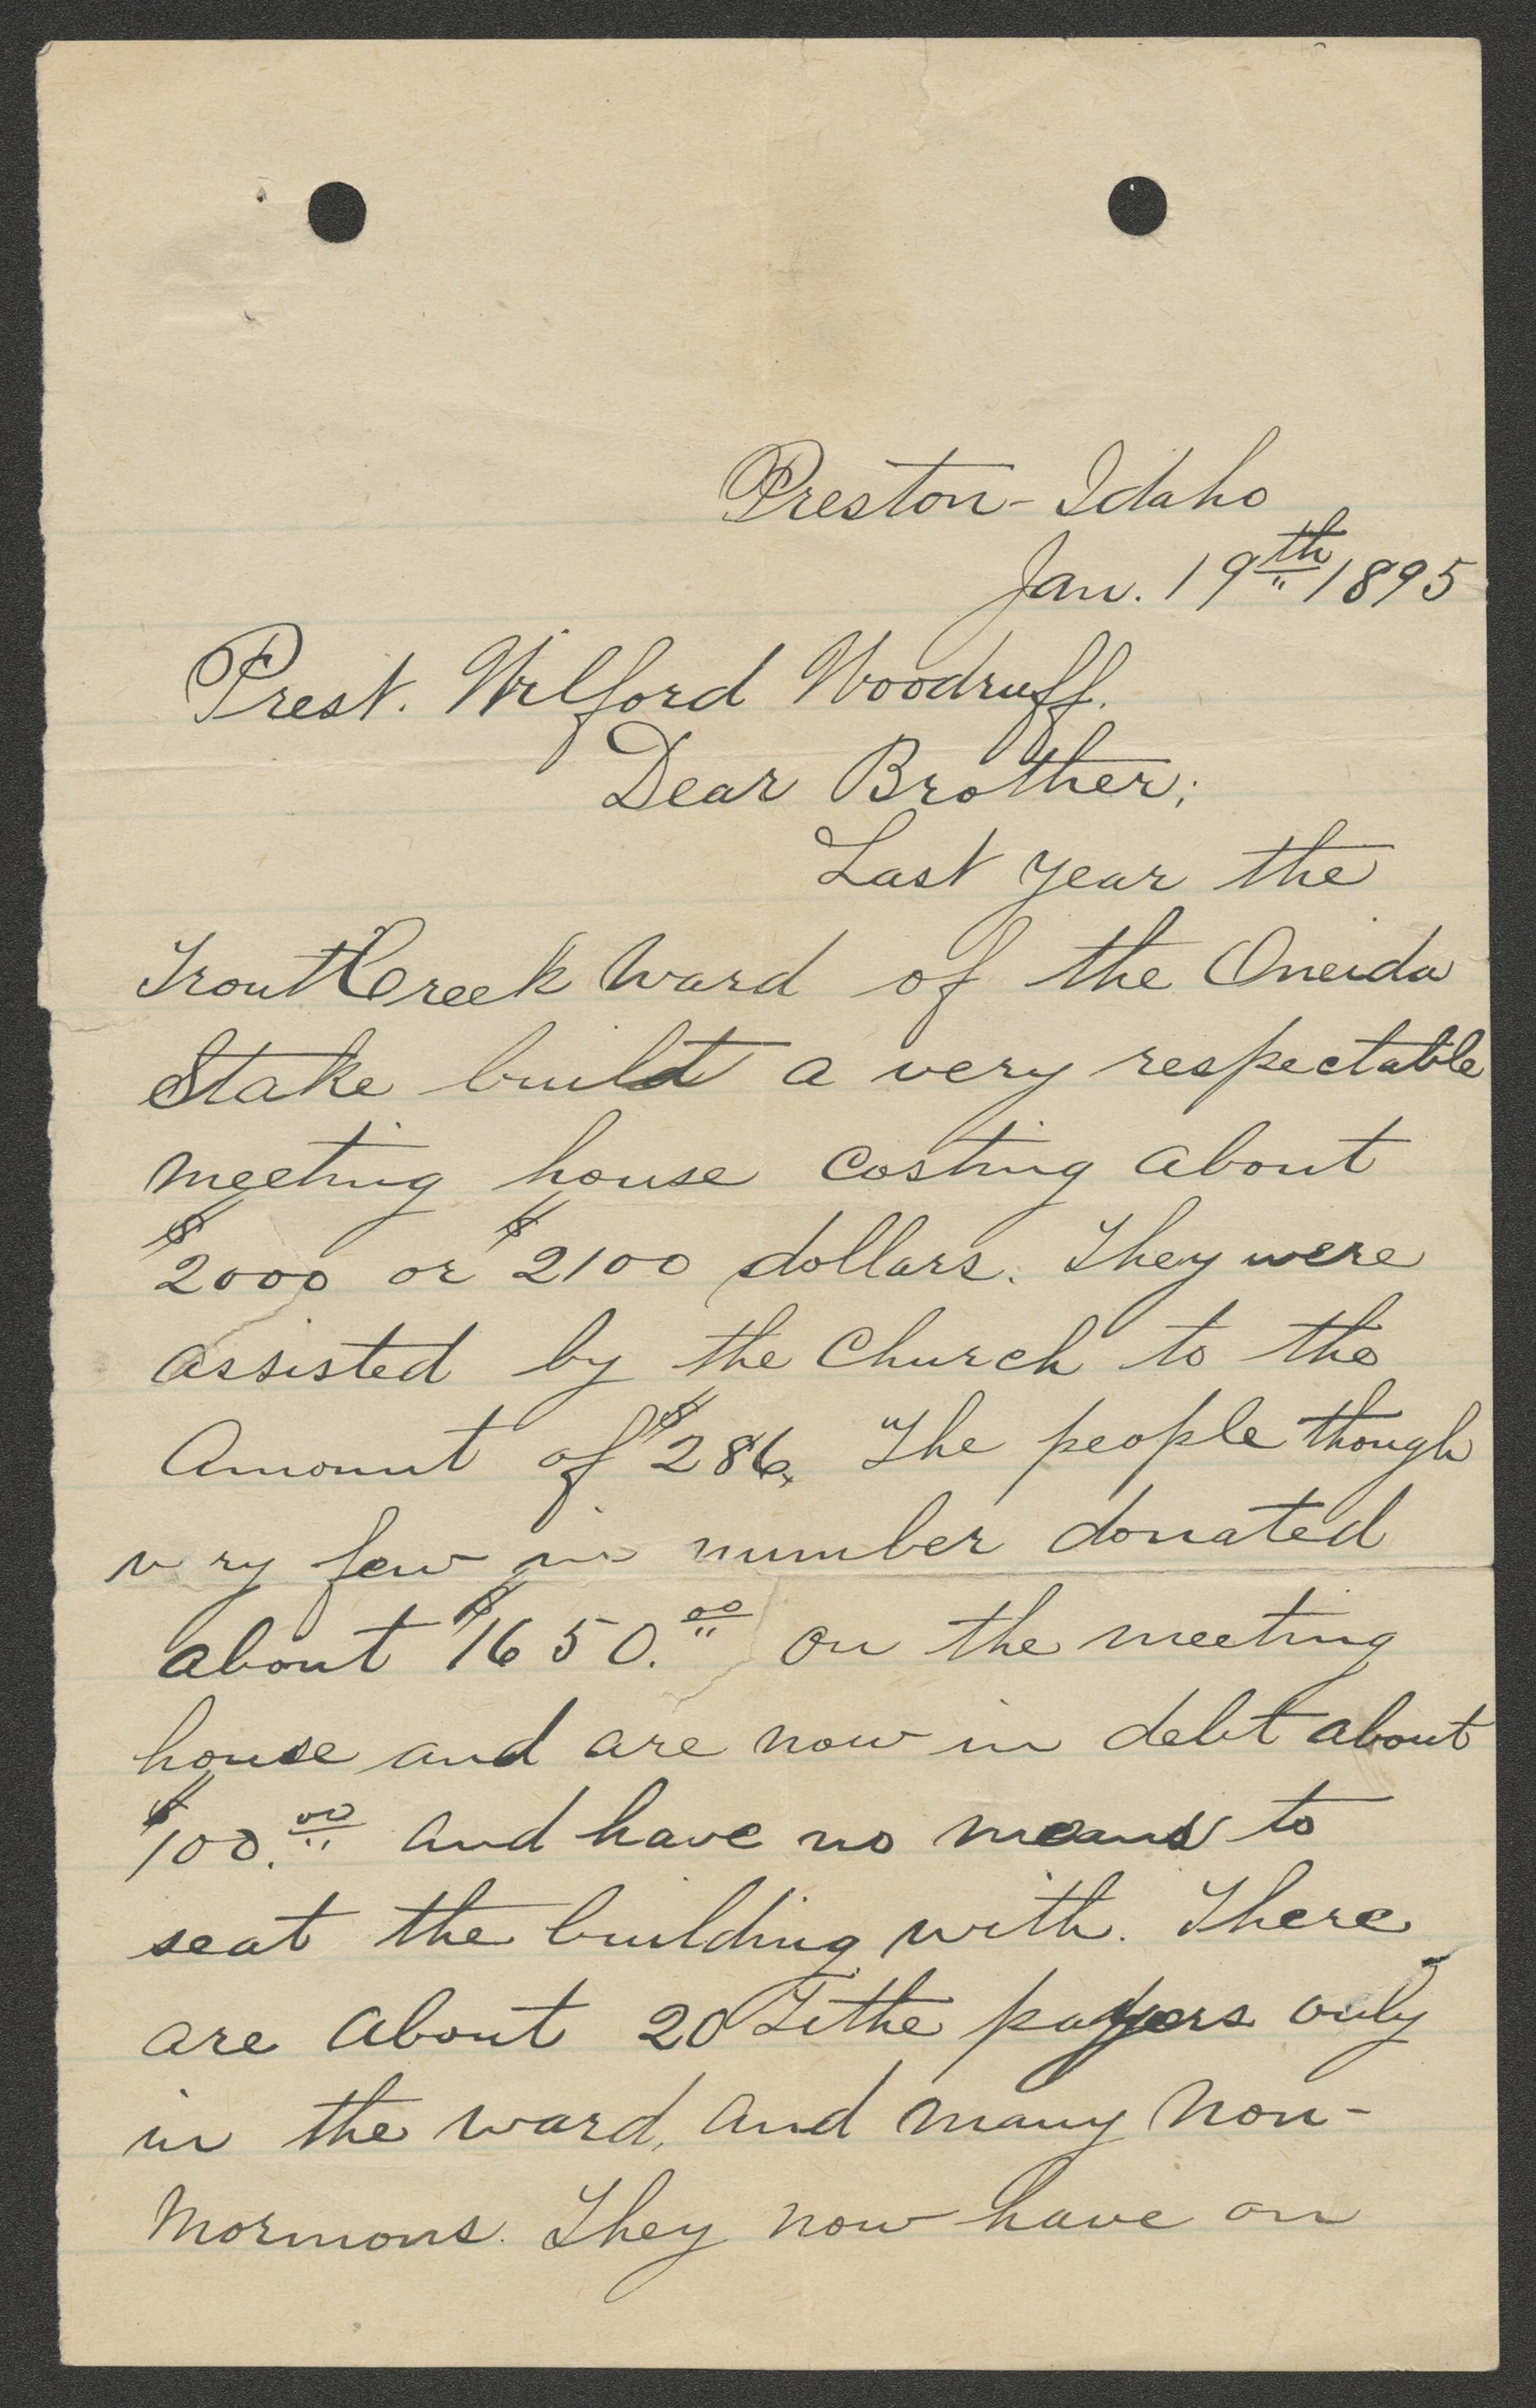 Preston - Idaho
Jan. 19th 1895
Prest. Wilford Woodruff.
Dear Brother;
Last year the
Trout Creek Ward of the Oneida
Stake built a very respectable
meeting house costing about
$2000 or $2100 dollars. They were
assisted by the Church to the
Amount of $286. The people though
v ry few in number donated
about $1650.00 on the meeting
house and are now in debt about
$100.00 and have no means to
seat the building with. There
are about 20 Tithe payers only
in the ward, and many Non-
Mormons. They now have on